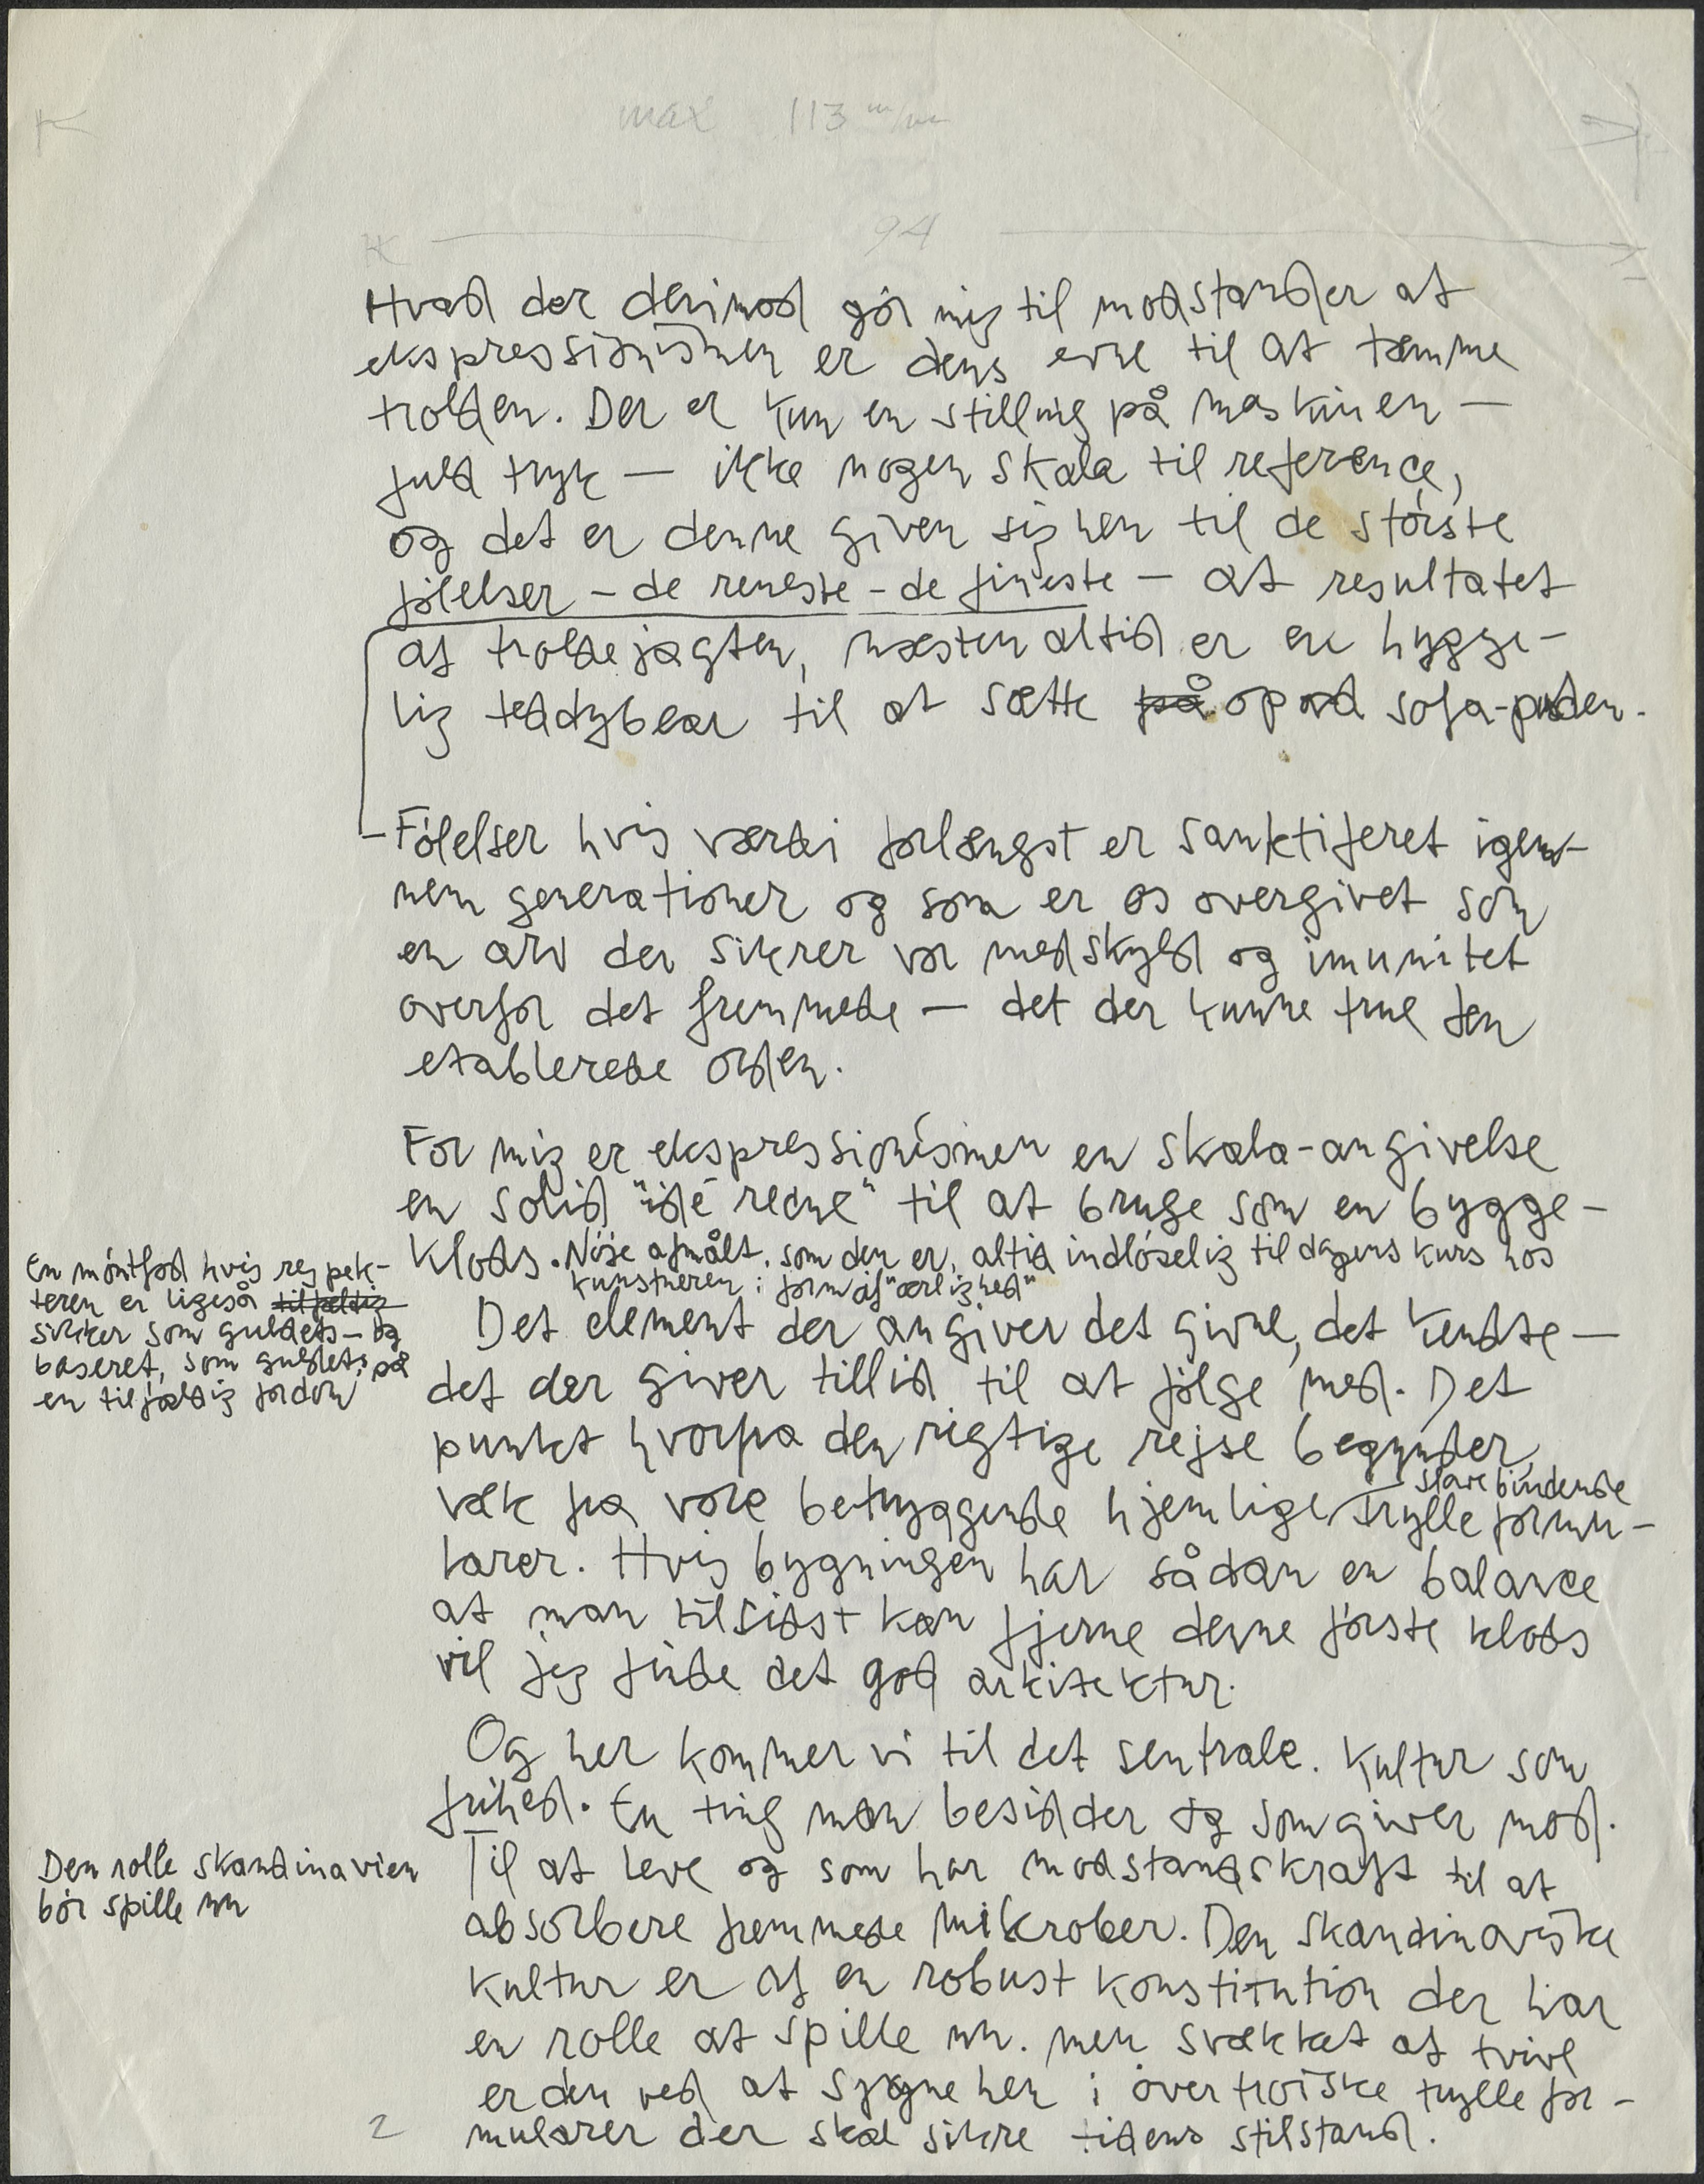 max 113 m/m
94
Hvad der derimod gör mig til modstander af
ekspressionismen er dens evne til at tæmme
trolden. Der er kun en stilling på maskinen —
fuld tryk — ikke nogen skala til reference,
og det er denne given sig hen til de störste
følelser – de reneste – de fineste – at resultatet
af troldejagten, næsten altid er en hygge-
lig teddybear til at sætte på op ad sofa-puden.
– Fölelser hvis værdi forlængst er sanktiferet igen-
nem generationer og som er os overgivet som
en arv der sikrer vor medskyld og imunitet
overfor det fremmede — det der kunne true den
etablerede orden.
For mig er ekspressionismen en skala-angivelse
en solid "idé recue" til at bruge som en bygge-
klods. Nöje afmålt, som den er, altid indlöselig til dagens kurs hos
kunstneren i form af "ærlighed"
En möntfod hvis respek-
teren er ligeså tilfeldig
sikker som guldets – og
baseret, som guldets på
en tilfældig fordom
Det element der angiver det givne, det kendte —
det der giver tillid til at fölge med. Det
punkt hvorfra den rigtige rejse begynder,
væk fra vore betryggende hjemlige slavebindende trylleformu-
larer. Hvis bygningen har sådan en balance
at man tilsidst kan fjerne denne förste klods
vil jeg finde det god arkitektur.
Og her kommer vi til det sentrale. Kultur som
frihed. En ting man besidder og som giver mod.
Til at leve og som har modstandskraft til at
absorbere fremmede mikrober. Den skandinaviske
kultur er af en robust konstitution der har
en rolle at spille nu. men svækket af tvivl
er den ved at sygne hen i overtroiske trylle for-
mularer der skal sikre tidens stilstand.
Den rolle skandinavien
bör spille nu
2